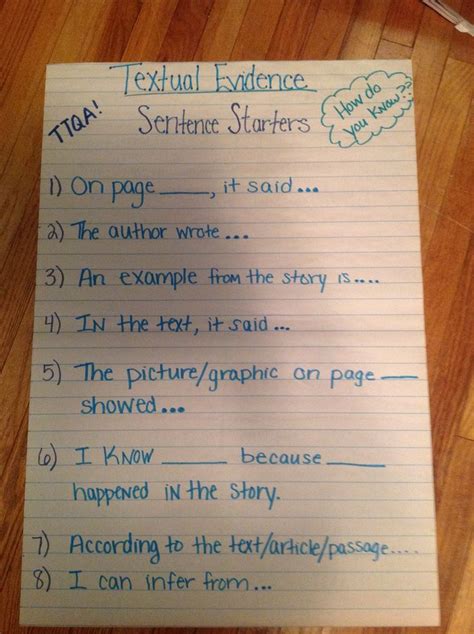 Textual Evidence
TTQA!
Sentence Starters
How do
you know??
1) On page ____, it said...
2) The author wrote...
3) An example from the story is....
4) In the text, it said...
5) The picture/graphic on page ___
showed...
6) I know _____ because ____
happened in the story.
7) According to the text/article/passage....
8) I can infer from...